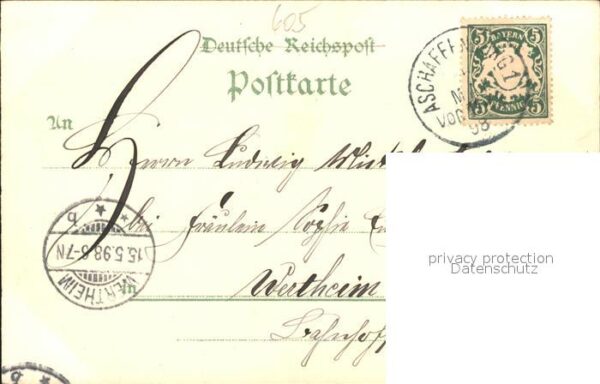 605
Deutsche Reichspost
Postkarte
BAYERN
5 5
5 5
PFENNIG
ASCHAFFEN
VOR
98
An
Herrn Ludwig
bei Fräulein Sophie
WERTHEIM
15.5.98 6-7N
b
In Wertheim
Bahnhof
privacy protection
Datenschutz
b